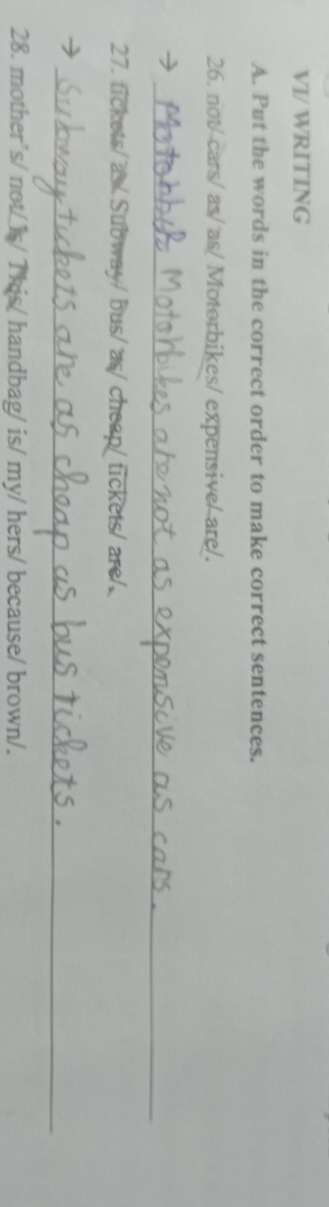 VI/ WRITING
A. Put the words in the correct order to make correct sentences.
26. not/ cars/ as/ as/ Motorbikes/ expensive/ are/.
→ Motorbikes are not as expensive as cars.
27. tickets/ as/ Subway/ bus/ as/ cheap/ tickets/ are/.
→ Subway tickets are as cheap as bus tickets.
28. mother's/ not/ is/ This/ handbag/ is/ my/ hers/ because/ brown/.